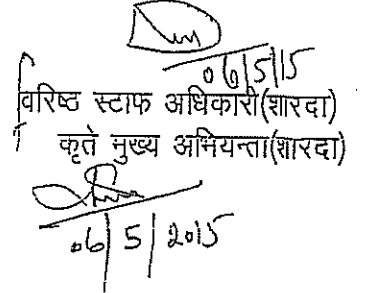 06/5/15
वरिष्ठ स्टाफ अधिकारी(शारदा)
कृते मुख्य अभियन्ता(शारदा)
06/5/2015